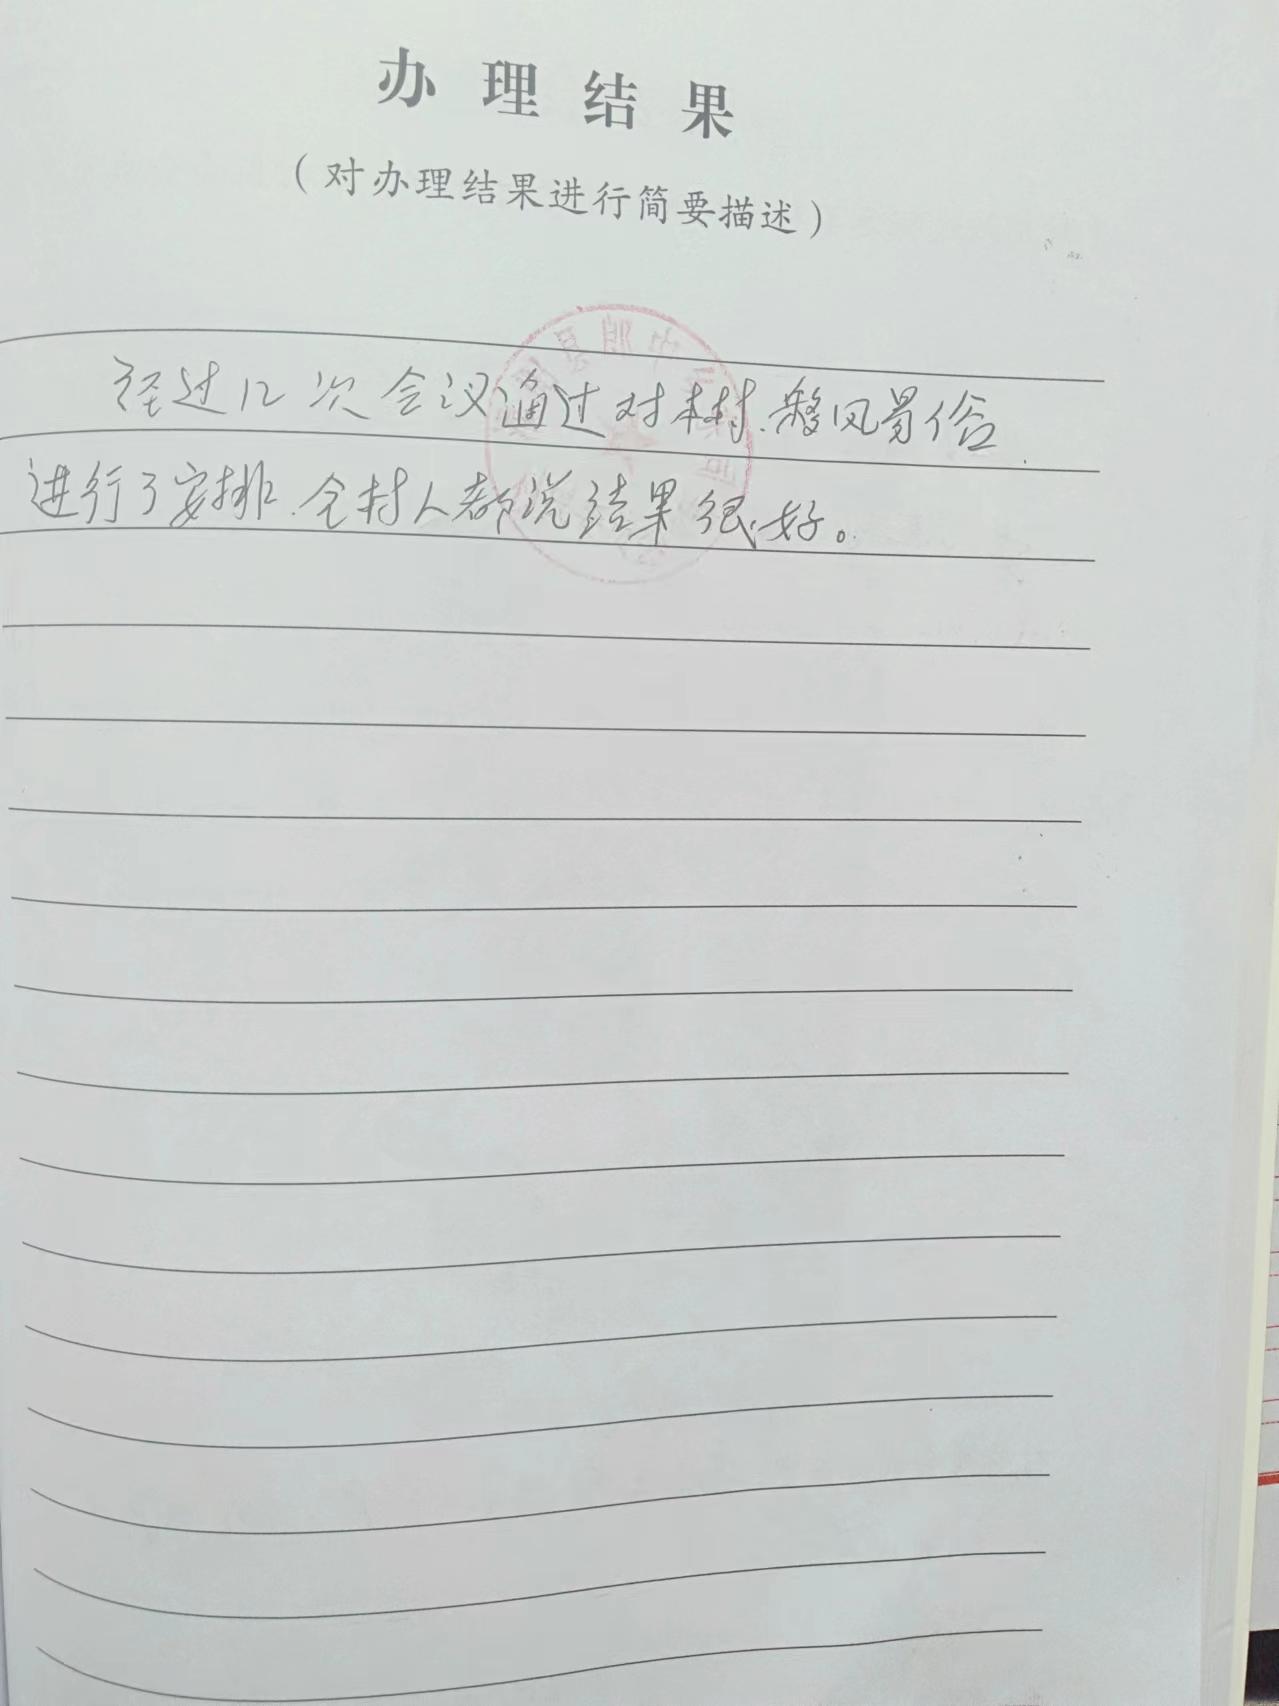 办理结果
（对办理结果进行简要描述）
经过几次会议通过对本村.移风易俗
进行了安排.全村人都说结果很好。